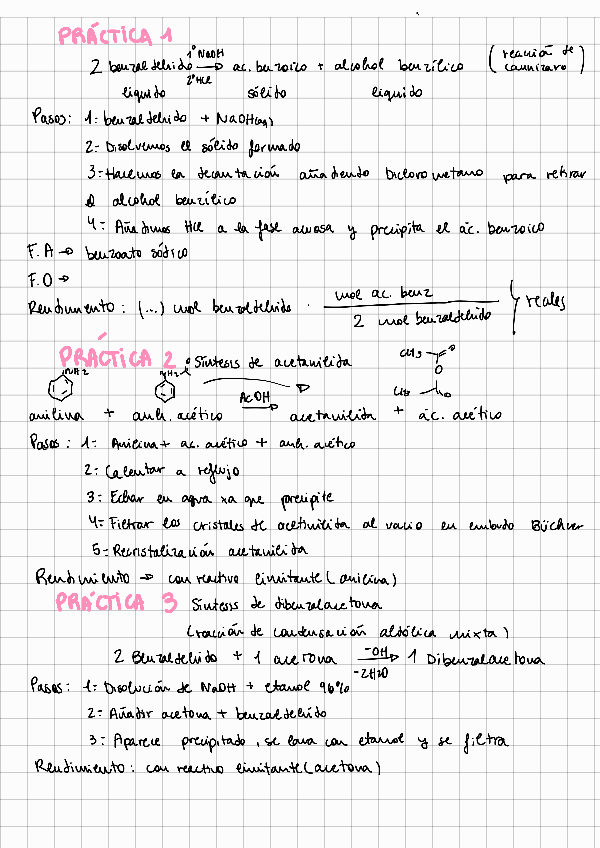 PRÁCTICA 1
2 benzaldehido 1º NaOH 2º HCl → ac. benzoico + alcohol benzílico (reacción de cannizaro)
líquido sólido líquido
Pasos: 1- benzaldehido + NaOH(aq)
2- Disolvemos el sólido formado
3- Hacemos la decantación añadiendo Diclorometano para retirar
el alcohol benzílico
4- Añadimos HCl a la fase acuosa y precipita el ác. benzoico
F.A → benzoato sódico
F.O →
Rendimiento: (...) mol benzaldehido · mol ac. benz / 2 mol benzaldehido } reales
PRÁCTICA 2 Síntesis de acetanilida
NH2 CH3 O
O
AcOH
anilina + anh. acético → acetanilida + ác. acético
Pasos: 1- Anilina + ac. acético + anh. acético
2- Calentar a reflujo
3- Echar en agua xa que precipite
4- Filtrar los cristales de acetinilida al vacio en embudo Büchner
5- Recristalización acetanilida
Rendimiento → con reactivo limitante (anilina)
PRÁCTICA 3 Síntesis de dibenzalacetona
(reacción de condensación aldólica mixta)
2 Benzaldehido + 1 acetona -OH → -2H2O 1 Dibenzalacetona
Pasos: 1- Disolución de NaOH + etanol 96%
2- Añadir acetona + benzaldehido
3- Aparece precipitado, se lava con etanol y se filtra
Rendimiento: con reactivo limitante (acetona)